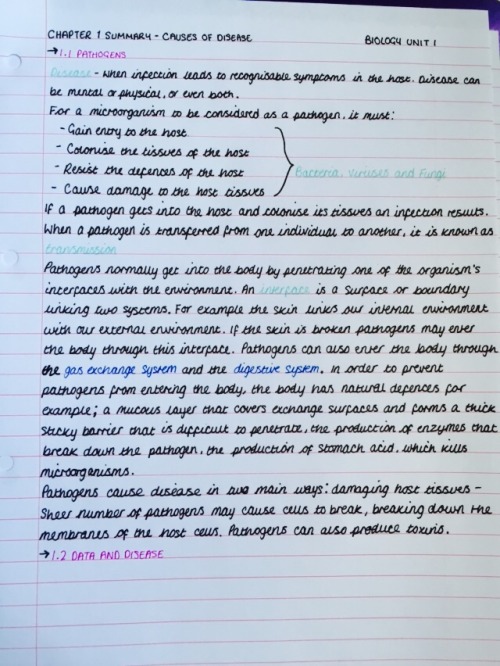 CHAPTER 1 SUMMARY - CAUSES OF DISEASE BIOLOGY UNIT 1
→ 1.1 PATHOGENS
Disease - When infection leads to recognisable symptoms in the host. Disease can
be mental or physical, or even both.
For a microorganism to be considered as a pathogen, it must:
- Gain entry to the host
- Colonise the tissues of the host
- Resist the defences of the host
- Cause damage to the host tissues
Bacteria, Viruses and Fungi
If a pathogen gets into the host and colonise its tissues an infection results.
When a pathogen is transferred from one individual to another, it is known as
transmission
Pathogens normally get into the body by penetrating one of the organism's
interfaces with the environment. An interface is a surface or boundary
linking two systems. For example the skin links our internal environment
with our external environment. If the skin is broken pathogens may enter
the body through this interface. Pathogens can also enter the body through
the gas exchange system and the digestive system. In order to prevent
pathogens from entering the body, the body has natural defences for
example; a mucous layer that covers exchange surfaces and forms a thick
sticky barrier that is difficult to penetrate, the production of enzymes that
break down the pathogen, the production of stomach acid, which kills
microorganisms.
Pathogens cause disease in two main ways: damaging host tissues -
Sheer number of pathogens may cause cells to break, breaking down the
membranes of the host cells. Pathogens can also produce toxins.
→ 1.2 DATA AND DISEASE